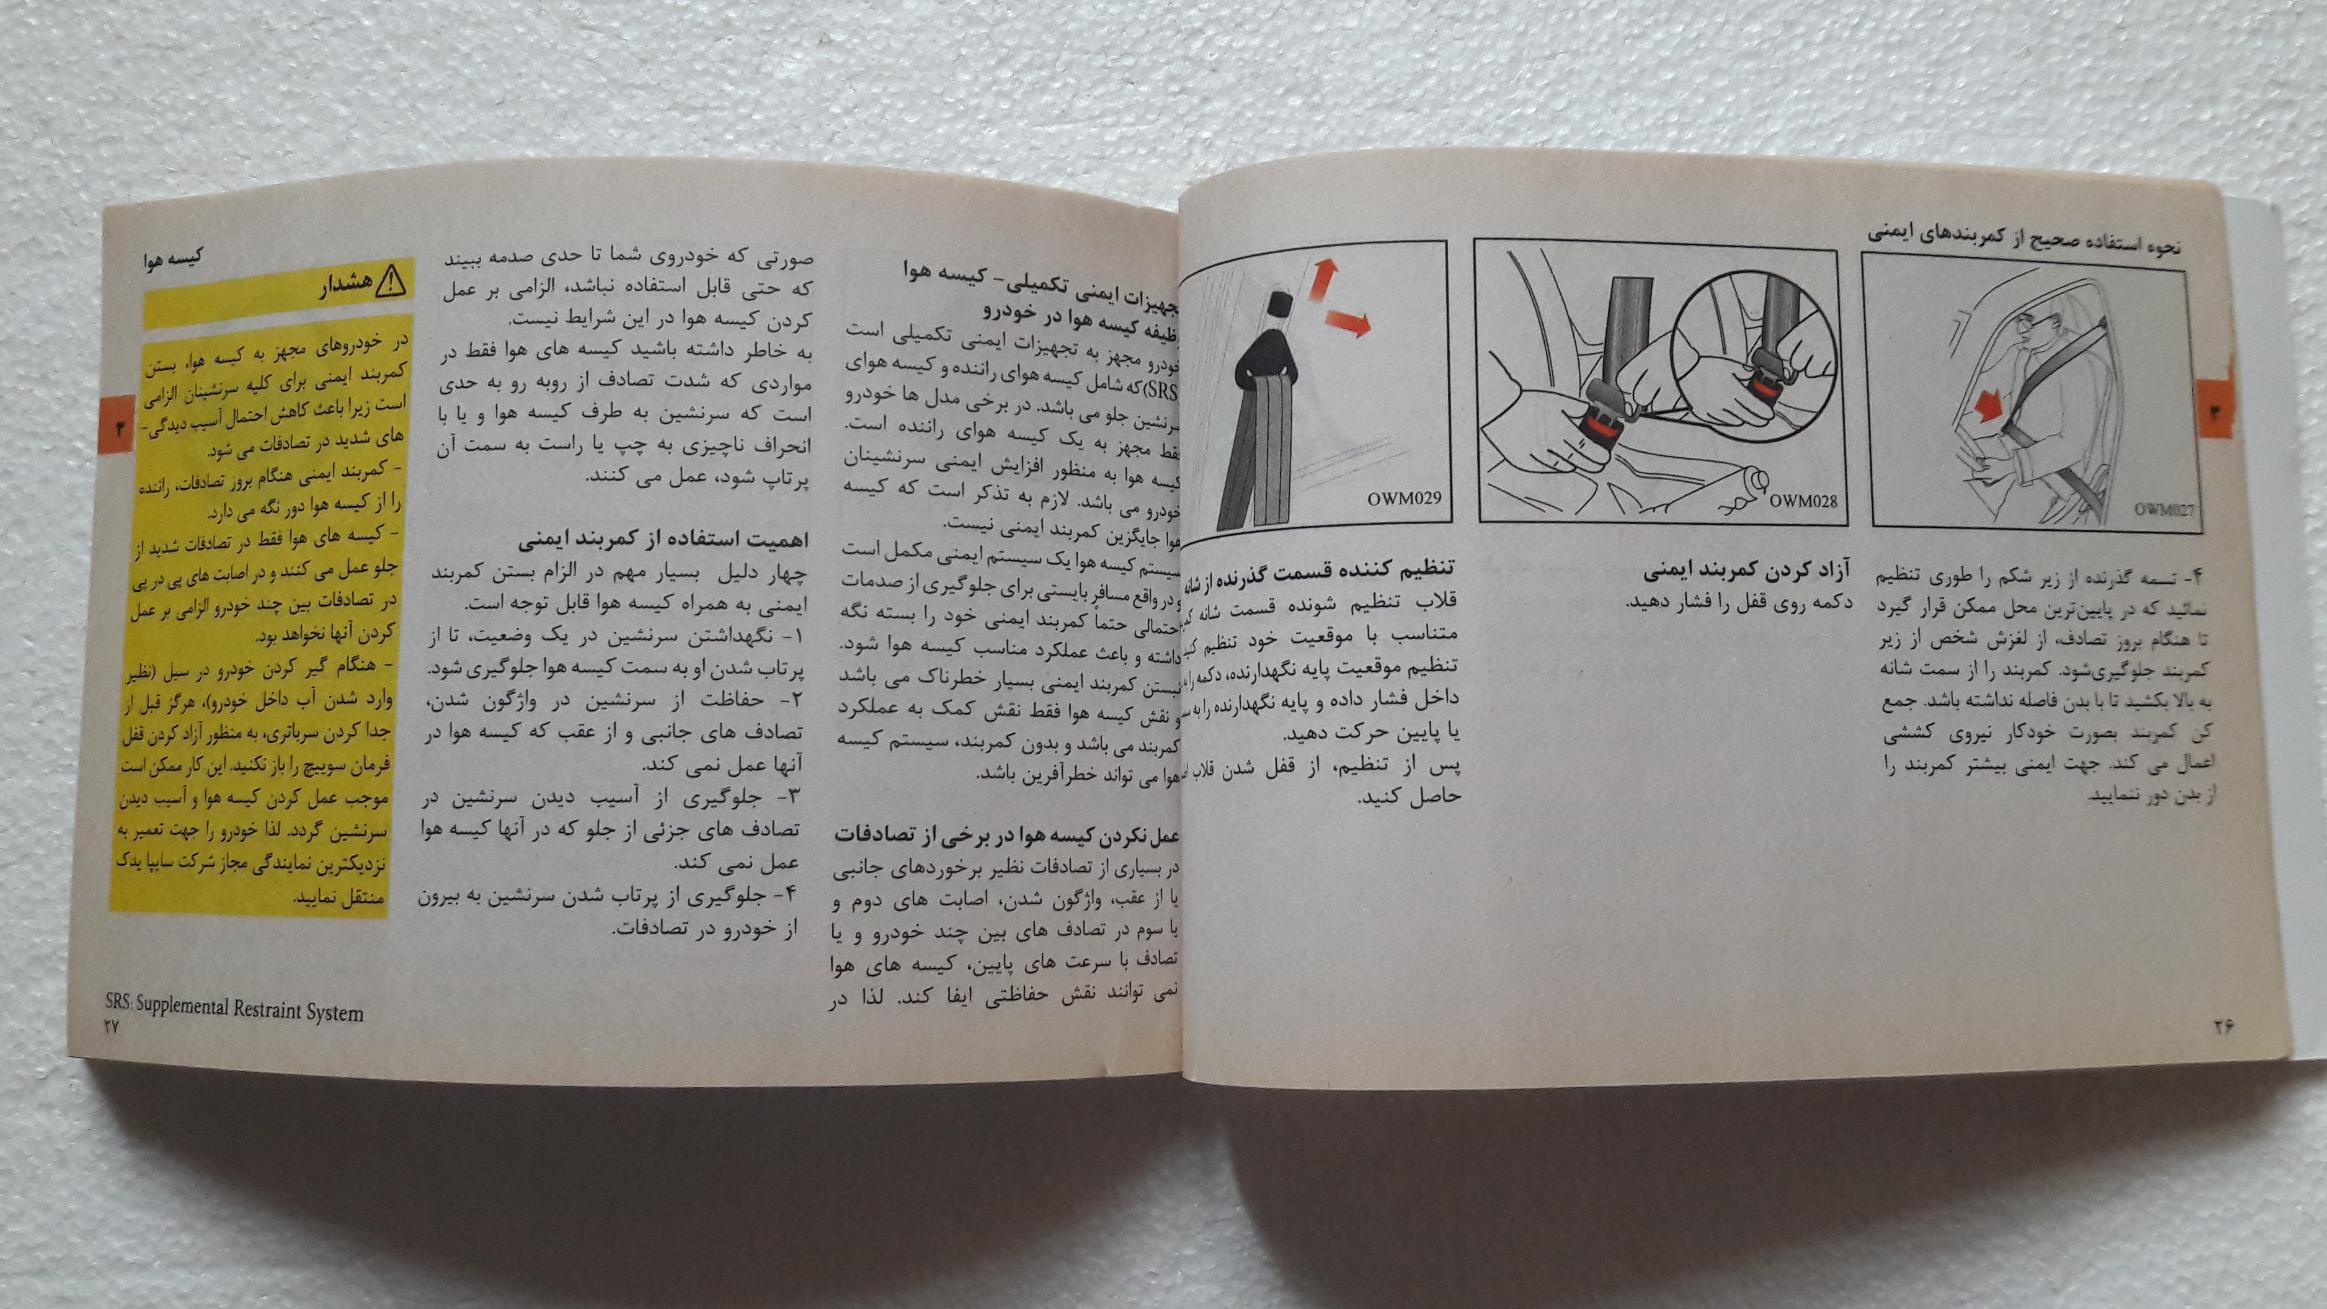 نحوه استفاده صحیح از کمربندهای ایمنی
OWM027
۴- تسمه گذرنده از زیر شکم را طوری تنظیم
نمائید که در پایین‌ترین محل ممکن قرار گیرد
تا هنگام بروز تصادف، از لغزش شخص از زیر
کمربند جلوگیری‌شود. کمربند را از سمت شانه
به بالا بکشید تا با بدن فاصله نداشته باشد. جمع
کن کمربند بصورت خودکار نیروی کششی
اعمال می کند. جهت ایمنی بیشتر کمربند را
از بدن دور ننمایید.
OWM028
آزاد کردن کمربند ایمنی
دکمه روی قفل را فشار دهید.
OWM029
تنظیم کننده قسمت گذرنده از شانه
قلاب تنظیم شونده قسمت شانه
متناسب با موقعیت خود تنظیم
تنظیم موقعیت پایه نگهدارنده، دکمه را
داخل فشار داده و پایه نگهدارنده را به
یا پایین حرکت دهید.
پس از تنظیم، از قفل شدن قلاب
حاصل کنید.
۳
۲۶
کیسه هوا
تجهیزات ایمنی تکمیلی- کیسه هوا
وظیفه کیسه هوا در خودرو
خودرو مجهز به تجهیزات ایمنی تکمیلی است
(SRS) که شامل کیسه هوای راننده و کیسه هوای
سرنشین جلو می باشد. در برخی مدل ها خودرو
فقط مجهز به یک کیسه هوای راننده است.
کیسه هوا به منظور افزایش ایمنی سرنشینان
خودرو می باشد. لازم به تذکر است که کیسه
هوا جایگزین کمربند ایمنی نیست.
سیستم کیسه هوا یک سیستم ایمنی مکمل است
و در واقع مسافر بایستی برای جلوگیری از صدمات
احتمالی حتماً کمربند ایمنی خود را بسته نگه
داشته و باعث عملکرد مناسب کیسه هوا شود.
نبستن کمربند ایمنی بسیار خطرناک می باشد
و نقش کیسه هوا فقط نقش کمک به عملکرد
کمربند می باشد و بدون کمربند، سیستم کیسه
هوا می تواند خطرآفرین باشد.
عمل نکردن کیسه هوا در برخی از تصادفات
در بسیاری از تصادفات نظیر برخوردهای جانبی
یا از عقب، واژگون شدن، اصابت های دوم و
یا سوم در تصادف های بین چند خودرو و یا
تصادف با سرعت های پایین، کیسه های هوا
نمی توانند نقش حفاظتی ایفا کند. لذا در
صورتی که خودروی شما تا حدی صدمه ببیند
که حتی قابل استفاده نباشد، الزامی بر عمل
کردن کیسه هوا در این شرایط نیست.
به خاطر داشته باشید کیسه های هوا فقط در
مواردی که شدت تصادف از روبه رو به حدی
است که سرنشین به طرف کیسه هوا و یا با
انحراف ناچیزی به چپ یا راست به سمت آن
پرتاپ شود، عمل می کنند.
اهمیت استفاده از کمربند ایمنی
چهار دلیل بسیار مهم در الزام بستن کمربند
ایمنی به همراه کیسه هوا قابل توجه است.
۱- نگهداشتن سرنشین در یک وضعیت، تا از
پرتاب شدن او به سمت کیسه هوا جلوگیری شود.
۲- حفاظت از سرنشین در واژگون شدن،
تصادف های جانبی و از عقب که کیسه هوا در
آنها عمل نمی کند.
۳- جلوگیری از آسیب دیدن سرنشین در
تصادف های جزئی از جلو که در آنها کیسه هوا
عمل نمی کند.
۴- جلوگیری از پرتاب شدن سرنشین به بیرون
از خودرو در تصادفات.
هشدار
در خودروهای مجهز به کیسه هوا، بستن
کمربند ایمنی برای کلیه سرنشینان الزامی
است زیرا باعث کاهش احتمال آسیب دیدگی-
های شدید در تصادفات می شود.
- کمربند ایمنی هنگام بروز تصادفات، راننده
را از کیسه هوا دور نگه می دارد.
- کیسه های هوا فقط در تصادفات شدید از
جلو عمل می کنند و در اصابت های پی در پی
در تصادفات بین چند خودرو الزامی بر عمل
کردن آنها نخواهد بود.
- هنگام گیر کردن خودرو در سیل (نظیر
وارد شدن آب داخل خودرو)، هرگز قبل از
جدا کردن سرباتری، به منظور آزاد کردن قفل
فرمان سوییچ را باز نکنید. این کار ممکن است
موجب عمل کردن کیسه هوا و آسیب دیدن
سرنشین گردد. لذا خودرو را جهت تعمیر به
نزدیکترین نمایندگی مجاز شرکت سایپا یدک
منتقل نمایید.
۳
SRS: Supplemental Restraint System
۲۷